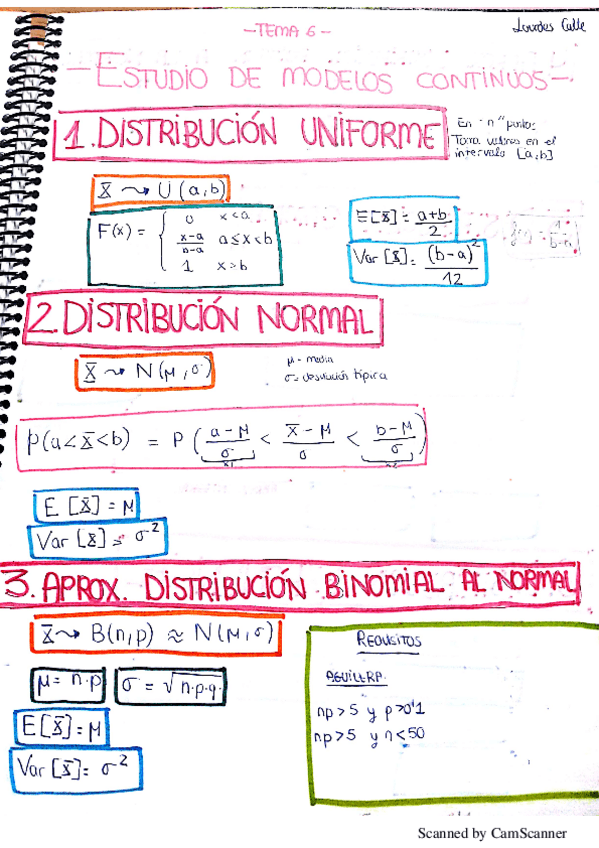 -TEMA 6-
Lourdes Calle
-ESTUDIO DE MODELOS CONTINUOS-
1. DISTRIBUCIÓN UNIFORME
En "n" puntos
Toma valores en el
intervalo [a,b]
X ~> U (a,b)
F(x) = { 0 x<a
x-a/b-a a≤x<b
1 x>b
E[X] = a+b/2
Var [X] = (b-a)²/12
2. DISTRIBUCIÓN NORMAL
X ~> N(μ,σ)
μ = media
σ = desviación típica
P(a<X<b) = P (a-μ/σ < X-μ/σ < b-μ/σ)
E [X] = μ
Var [X] = σ²
3. APROX. DISTRIBUCIÓN BINOMIAL AL NORMAL
X ~> B(n,p) ≈ N(μ,σ)
μ = n.p
σ = √n.p.q.
E[X] = μ
Var [X] = σ²
REQUISITOS
AGUILERA
np>5 y p>0'1
np>5 y n<50
Scanned by CamScanner